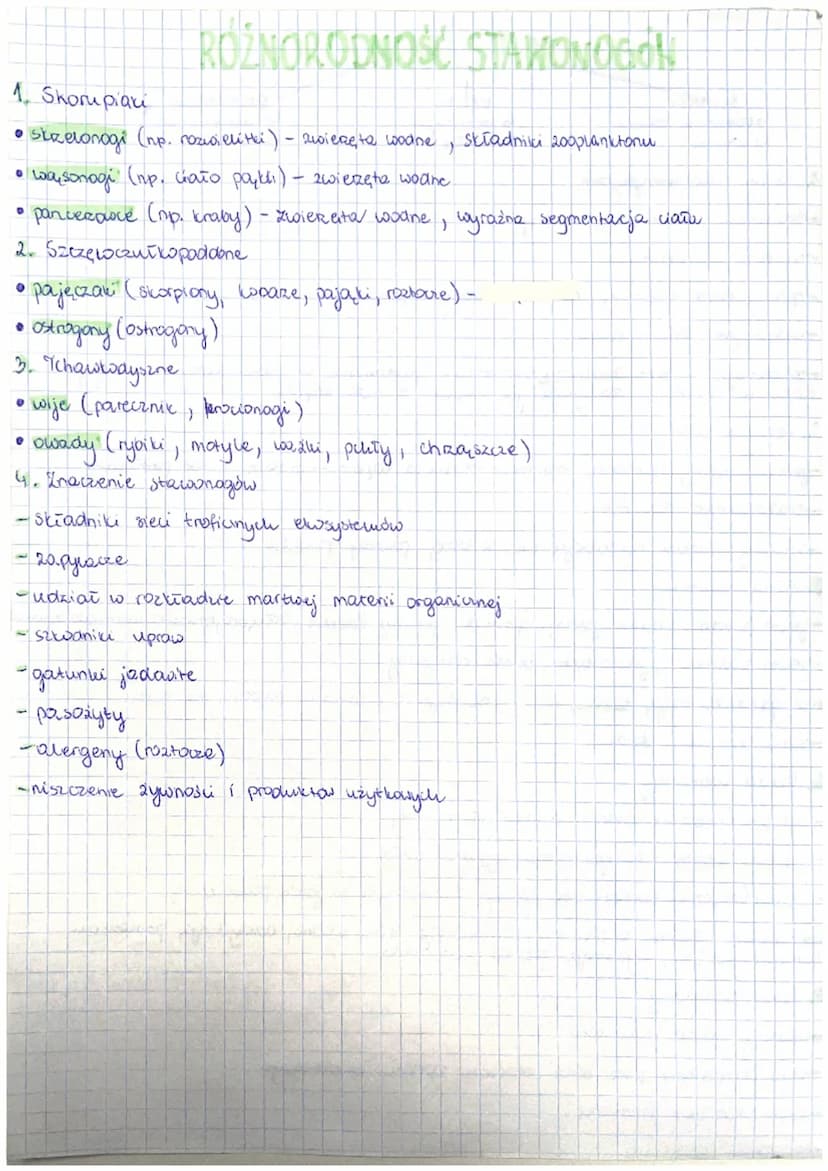 RÓŻNORODNOŚĆ STAWONOGÓW
1. Skorupiaki
• skrzelonogi (np. rozwielitki) - zwierzęta wodne, składniki zooplanktonu
• wąsonogi (np. ciało pąkli) - zwierzęta wodne
• pancerzowce (np. kraby) - zwierzęta wodne, wyraźna segmentacja ciała
2. Szczękoczułkopodobne
• pajęczaki (skorpiony, kosarze, pająki, roztocze) -
• ostrogony (ostrogony)
3. Tchawkodyszne
• wije (parecznik, krocionogi)
• owady (rybiki, motyle, ważki, pchły, chrząszcze)
4. Znaczenie stawonogów
- składniki sieci troficznych ekosystemów
- zapylacze
- udział w rozkładzie martwej materii organicznej
- szkodniki upraw
- gatunki jadowite
- pasożyty
- alergeny (roztocze)
- niszczenie żywności i produktów użytkowych